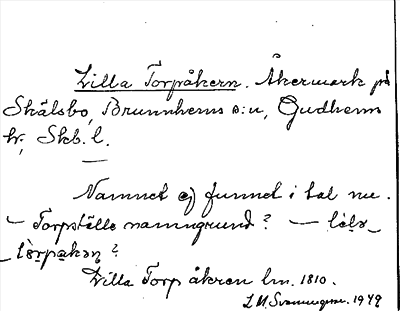 Lilla Torpåkern. Åkermark på
Skälsbo, Brunnhems s:n, Gudhems
hr, Skb. l.
—
Namnet ej funnet i tal nu.
— Torpställe namngrund? —
Lilla Torp åkren lm. 1810.
1949